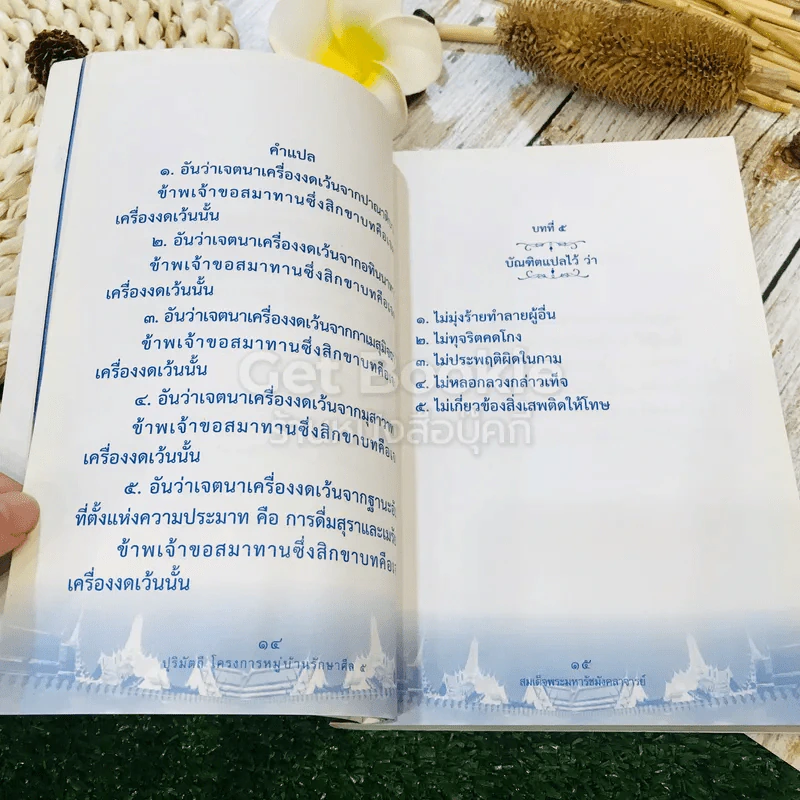 คำแปล
๑. อันว่าเจตนาเครื่องงดเว้นจากปาณา
ข้าพเจ้าขอสมาทานซึ่งสิกขาบทคือ
เครื่องงดเว้นนั้น
๒. อันว่าเจตนาเครื่องงดเว้นจากอทินนา
ข้าพเจ้าขอสมาทานซึ่งสิกขาบทคือ
เครื่องงดเว้นนั้น
๓. อันว่าเจตนาเครื่องงดเว้นจากกาเมสุมิ
ข้าพเจ้าขอสมาทานซึ่งสิกขาบทคือ
เครื่องงดเว้นนั้น
๔. อันว่าเจตนาเครื่องงดเว้นจากมุสาวา
ข้าพเจ้าขอสมาทานซึ่งสิกขาบทคือ
เครื่องงดเว้นนั้น
๕. อันว่าเจตนาเครื่องงดเว้นจากฐานะ
ที่ตั้งแห่งความประมาท คือ การดื่มสุราและเม
ข้าพเจ้าขอสมาทานซึ่งสิกขาบทคือ
เครื่องงดเว้นนั้น
๑๔
ปุริมัตถ์ โครงการหมู่บ้านรักษาศีล ๕
บทที่ ๕
บัณฑิตแปลไว้ ว่า
๑. ไม่มุ่งร้ายทำลายผู้อื่น
๒. ไม่ทุจริตคดโกง
๓. ไม่ประพฤติผิดในกาม
๔. ไม่หลอกลวงกล่าวเท็จ
๕. ไม่เกี่ยวข้องสิ่งเสพติดให้โทษ
๑๕
สมเด็จพระมหารัชมังคลาจารย์
Get Bookie
ร้านหนังสือบุ๊คกี้